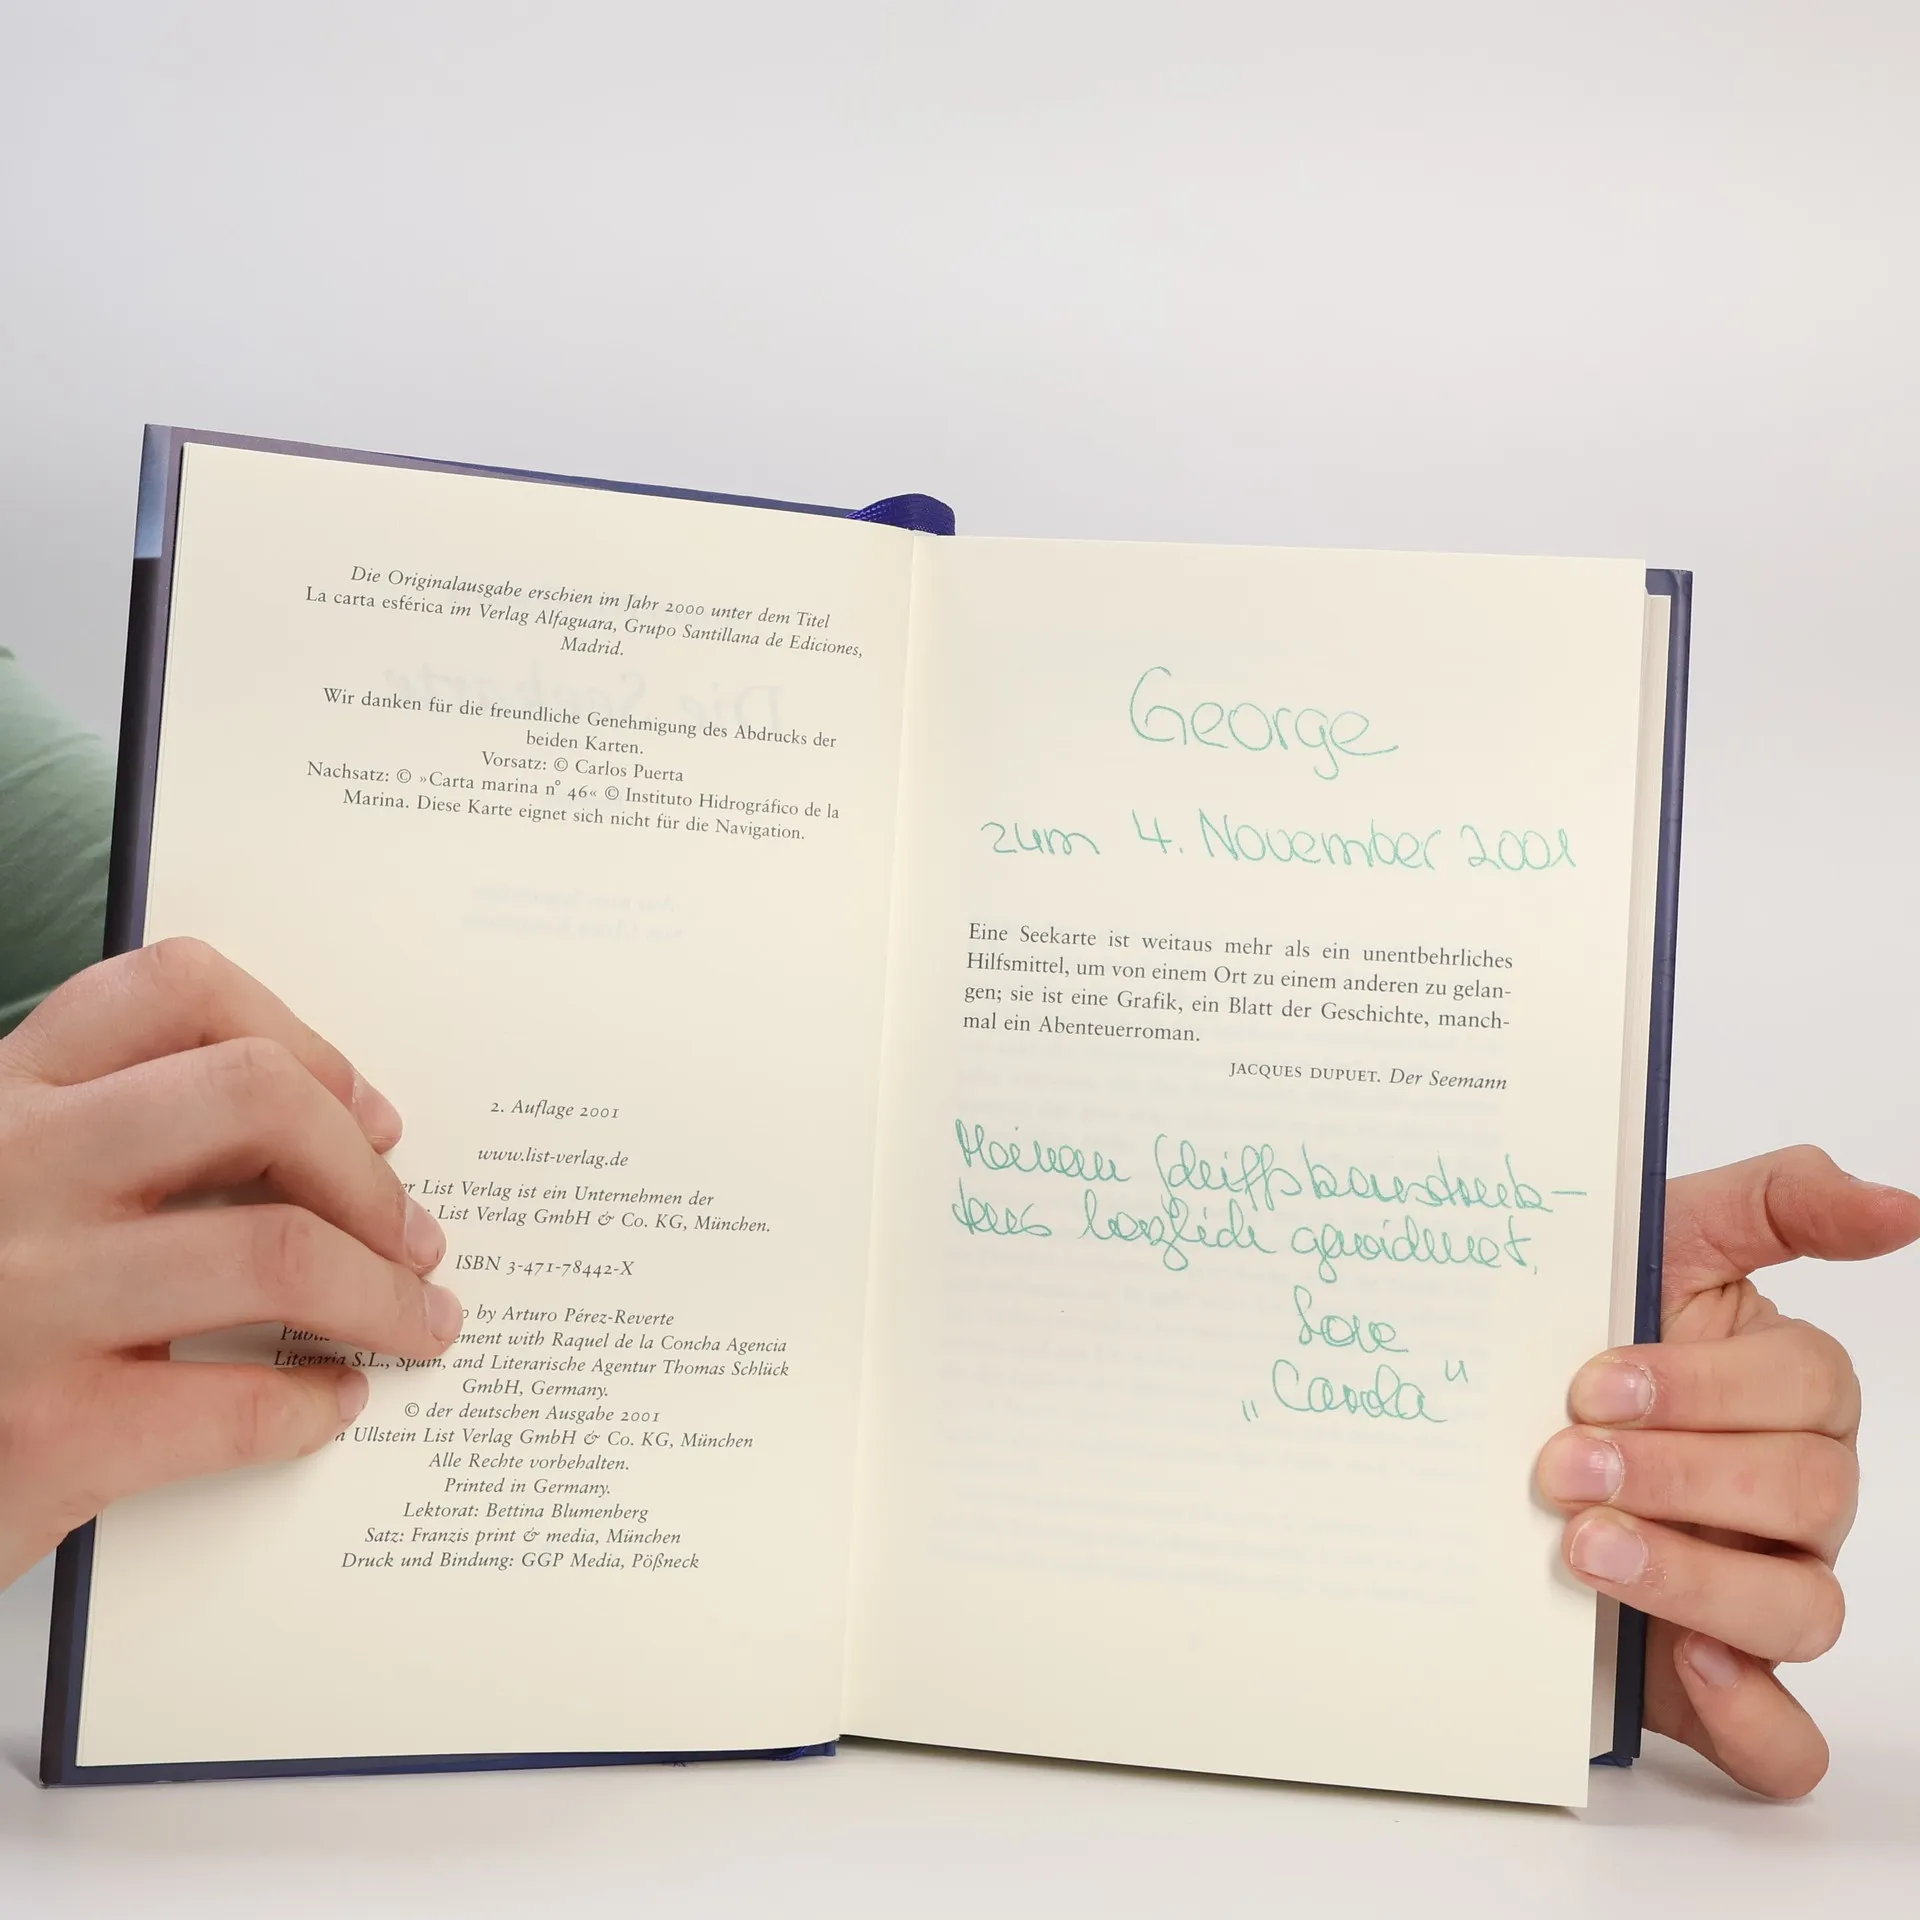 Die Originalausgabe erschien im Jahr 2000 unter dem Titel
La carta esférica im Verlag Alfaguara, Grupo Santillana de Ediciones,
Madrid.
Wir danken für die freundliche Genehmigung des Abdrucks der
beiden Karten.
Vorsatz: © Carlos Puerta
Nachsatz: © »Carta marina n° 46« © Instituto Hidrográfico de la
Marina. Diese Karte eignet sich nicht für die Navigation.
2. Auflage 2001
www.list-verlag.de
List Verlag ist ein Unternehmen der
List Verlag GmbH & Co. KG, München.
ISBN 3-471-78442-X
by Arturo Pérez-Reverte
with Raquel de la Concha Agencia
Literaria S.L., Spain, and Literarische Agentur Thomas Schlück
GmbH, Germany.
© der deutschen Ausgabe 2001
Ullstein List Verlag GmbH & Co. KG, München
Alle Rechte vorbehalten.
Printed in Germany.
Lektorat: Bettina Blumenberg
Satz: Franzis print & media, München
Druck und Bindung: GGP Media, Pößneck
George
zum 4. November 2001
Eine Seekarte ist weitaus mehr als ein unentbehrliches
Hilfsmittel, um von einem Ort zu einem anderen zu gelan-
gen; sie ist eine Grafik, ein Blatt der Geschichte, manch-
mal ein Abenteuerroman.
JACQUES DUPUET. Der Seemann
Meinem
herzlich gewidmet.
Love
„Carola"